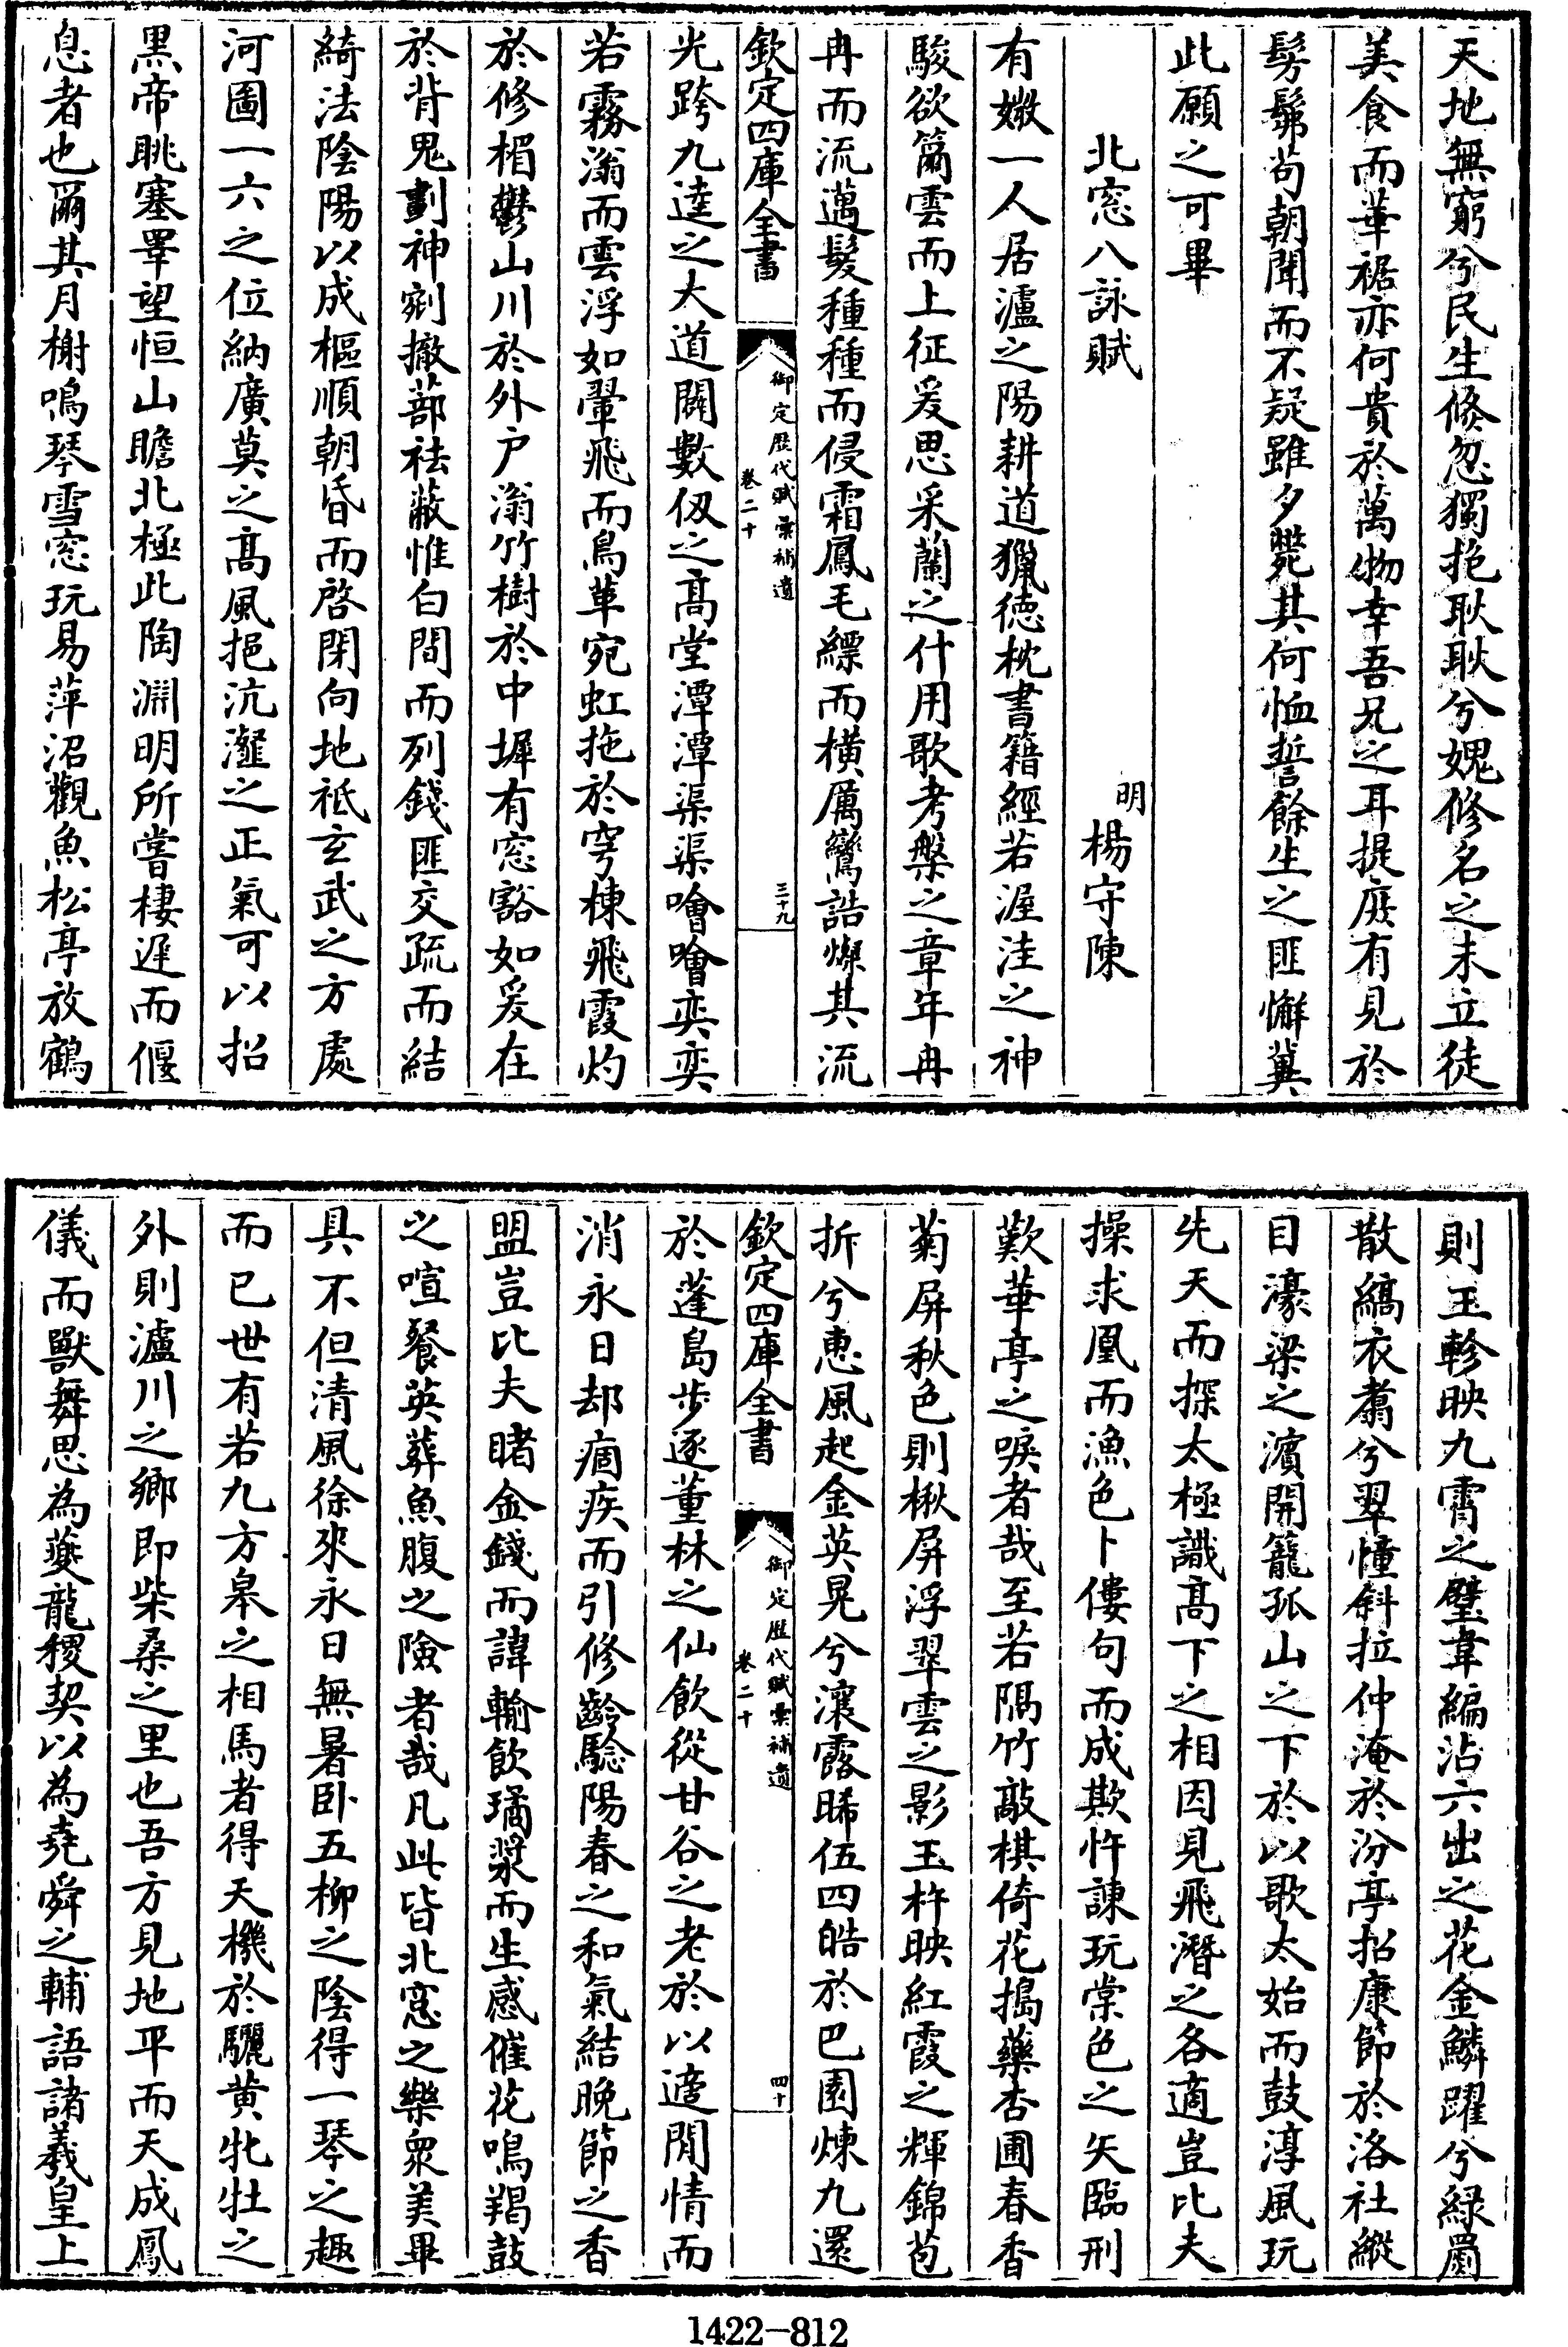 天地無窮兮民生倏忽獨抱耿耿兮媿修名之未立徒
美食而華裾亦何貴於萬物幸吾兄之耳提庶有見於
髣髴苟朝聞而不疑雖夕斃其何恤誓餘生之匪懈冀
此願之可畢
北窓八詠賦
明楊守陳
有媺一人居瀘之陽耕道獵徳枕書籍經若渥洼之神
駿欲籋雲而上征爰思采蘭之什用歌考槃之章年冉
冉而流邁髮種種而侵霜鳳毛縹而橫厲鸞誥燦其流
欽定四庫全書
御定歴代賦彙補遺
卷二十
三十九
光跨九逵之太道闢數仭之髙堂潭潭渠渠噲噲奕奕
若霧滃而雲浮如翬飛而鳥革宛虹拖於穹棟飛霞灼
於修楣鬱山川於外户滃竹樹於中墀有窓豁如爰在
於背鬼劃神剜撤蔀祛蔽惟白間而列錢匪交疏而結
綺法陰陽以成樞順朝昏而啓閉向地祗玄武之方處
河圖一六之位納廣莫之髙風挹沆瀣之正氣可以招
黒帝眺塞睪望恒山瞻北極此陶淵明所嘗棲遲而偃
息者也爾其月榭鳴琴雪窓玩易萍沼觀魚松亭放鶴
則玉軫映九霄之璧韋編沾六出之花金鱗躍兮緑罽
散縞衣翥兮翠幢斜拉仲淹於汾亭招康節於洛社縱
目濠梁之濱開籠孤山之下於以歌太始而鼓淳風玩
先天而探太極識髙下之相因見飛潛之各適豈比夫
操求凰而漁色卜僂句而成欺忤諫玩棠邑之矢臨刑
歎華亭之唳者哉至若隔竹敲棋倚花搗藥杏圃春香
菊屏秋色則楸屏浮翠雲之影玉杵映紅霞之輝錦苞
折兮惠風起金英晃兮瀼露晞伍四皓於巴園煉九還
欽定四庫全書
御定歴代賦彙補遺
卷二十
四十
於蓬島步逐董林之仙飲從甘谷之老於以適閒情而
消永日却痼疾而引修齡騐陽春之和氣結晚節之香
盟豈比夫睹金錢而諱輸飲璚漿而生感催花鳴羯鼓
之喧餐英葬魚腹之險者哉凡此皆北窓之樂衆美畢
具不但清風徐來永日無暑卧五柳之陰得一琴之趣
而已世有若九方皋之相馬者得天機於驪黄牝牡之
外則瀘川之鄉即柴桑之里也吾方見地平而天成鳳
儀而獸舞思為夔龍稷契以為堯舜之輔語諸羲皇上
1422—812